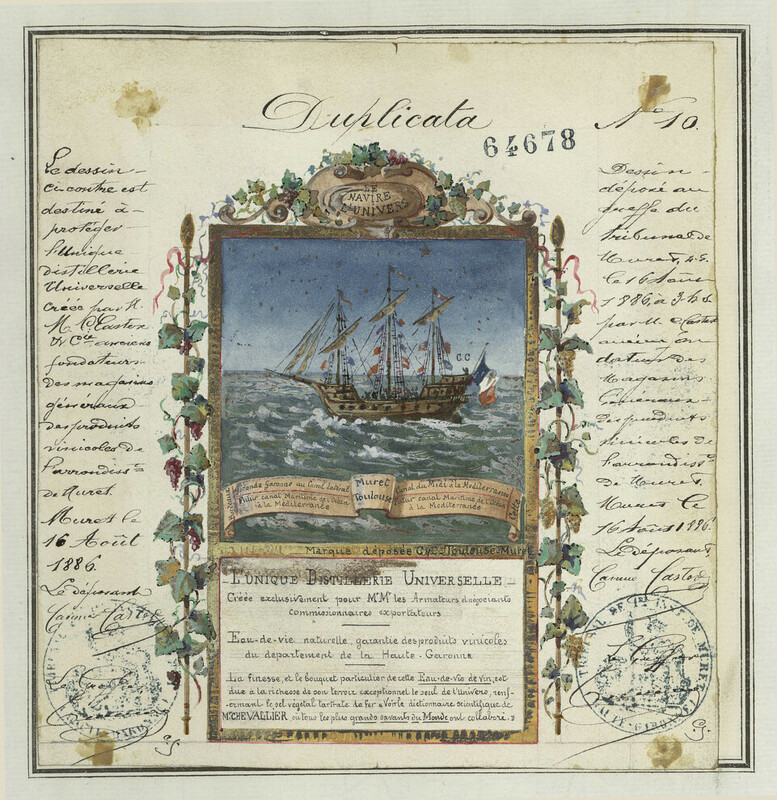 Duplicata
64678
N° 10.
Le dessin
ci-contre est
destiné à
protéger
l'Unique
distillerie
Universelle
créée par M.
M. C. Castex
& Cie anciens
fondateurs
des magasins
généraux
des produits
vinicoles de
l'arrondisst
de Muret.
Muret le
16 Août
1886.
Le déposant
Camille Castex
LE
NAVIRE
L'UNIVERS
C.C
Grande Garonne au Canal latéral
Futur canal Maritime de l'Océan
à la Méditerranée
Muret
Toulouse
Canal du Midi à la Méditerranée
Futur canal Maritime de l'Océan
à la Méditerranée
Cette
Marque déposée Cyt- Toulouse-Muret
L'UNIQUE DISTILLERIE UNIVERSELLE
Créée exclusivement pour M.M. les Armateurs négociants
commissionnaires exportateurs
Eau-de-vie naturelle, garantie des produits vinicoles
du département de la Haute-Garonne
La finesse, et le bouquet particulier de cette Eau-de-vie de vin, est
due à la richesse de son terroir exceptionnel le seul de l'univers, renf-
ermant le sel végétal tartrate de fer « Voir le dictionnaire scientifique de
Mr CHEVALLIER où tous les plus grands savants du Monde ont collaboré. »
Dessin
déposé au
greffe du
tribunal de
Muret,
le 16 Août
1886, à 3 h
par M Castex
ancien fon
dateur des
Magasins
Généraux
des produits
vinicoles de
l'arrondisst
de Muret.
Muret le
16 Août 1886.
Le Déposant
Camille Castex
Le Greffier